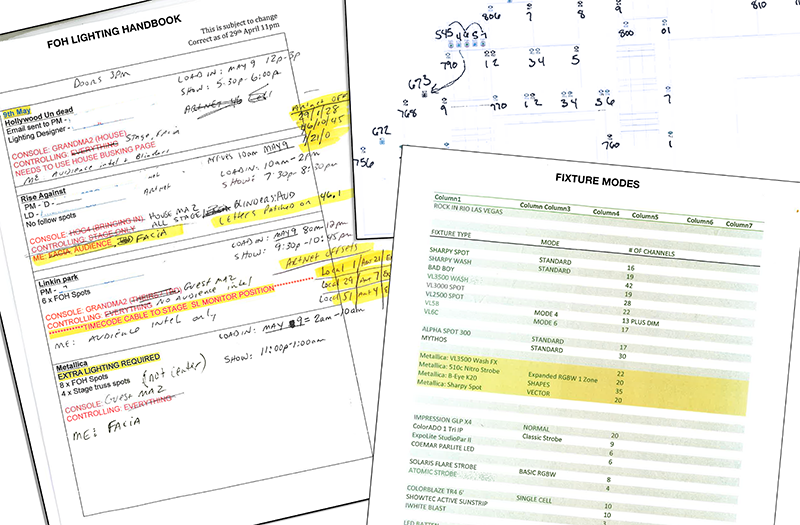 FOH LIGHTING HANDBOOK
This is subject to change
Correct as of 29th April 11pm
DOORS 3pm
9th May
Hollywood Un dead
Email sent to PM -
Lighting Designer -
LOAD IN: MAY 9 12p-3p
SHOW: 5:30p-6:00p
CONSOLE: GRANDMA2 (HOUSE)
CONTROLLING: EVERYTHING Stage, Facia
NEEDS TO USE HOUSE BUSKING PAGE
ME: Audience intel + Blinders
ARTNET OFF
29/1/28
46/10/45
1/21/0
Rise Against
PM - D
LD -
No follow spots
ARTNET
10am MAY9
LOADIN: 10am-2pm
SHOW: 7:30p-8:30pm
CONSOLE: HOG4 (BRINGING IN) HOUSE MA2
CONTROLLING: STAGE ONLY ALL STAGE, BLINDERS: AUD
ME: FACIA AUDIENCE, FACIA
Letters Patched on 46.1
Linkin park
PM -
6 x FOH Spots
LOADIN: MAY9 8am-12pm
SHOW: 9:30p-10:45pm
ARTNET OFFSETS
CONSOLE: GRANDMA2 (THEIRS TBD) Guest MA2
CONTROLLING: EVERYTHING NO Audience intel
TIMECODE CABLE TO STAGE SL MONITOR POSITION
ME: Audience intel only
Local 1
Local 29
Local 51
Metallica
EXTRA LIGHTING REQUIRED
8 x FOH Spots
4 x Stage truss spots (not center)
LOADIN: MAY 9 = 2am-10am
SHOW: 11:00p-1:00am
CONSOLE: Guest MA2
CONTROLLING: EVERYTHING
ME: FACIA
806 7 8 9 810
545
800 01
790 12 34 5
673
768 9 770 12 34 56 7
672
756
760 1
FIXTURE MODES
Column1 Column Column3 Column4 Column5 Column6 Column7
ROCK IN RIO LAS VEGAS
FIXTURE TYPE MODE # OF CHANNELS
SHARPY SPOT STANDARD 16
SHARPY WASH STANDARD 19
BAD BOY 42
VL3500 WASH 19
VL3000 SPOT 28
VL2500 SPOT
VL5B
VL6C MODE 4
MODE 6 13 PLUS DIM
17
ALPHA SPOT 300 STANDARD 17
MYTHOS STANDARD 30
Metallica: VL3500 Wash FX 22
Metallica: 510c Nitro Strobe Expanded RGBW 1 Zone 20
Metallica: B-Eye K20 SHAPES 35
Metallica: Sharpy Spot VECTOR 20
IMPRESSION GLP X4 NORMAL 20
ColorADO 1 Tri IP Classic Strobe 9
ExpoLite StudioPar II 6
COEMAR PARLITE LED 6
SOLARIS FLARE STROBE BASIC RGBW 8
ATOMIC STROBE 4
COLORBLAZE TR4 6' SINGLE CELL 10
SHOWTEC ACTIVE SUNSTRIP 10
IWHITE BLAST 3
LED BATTEN